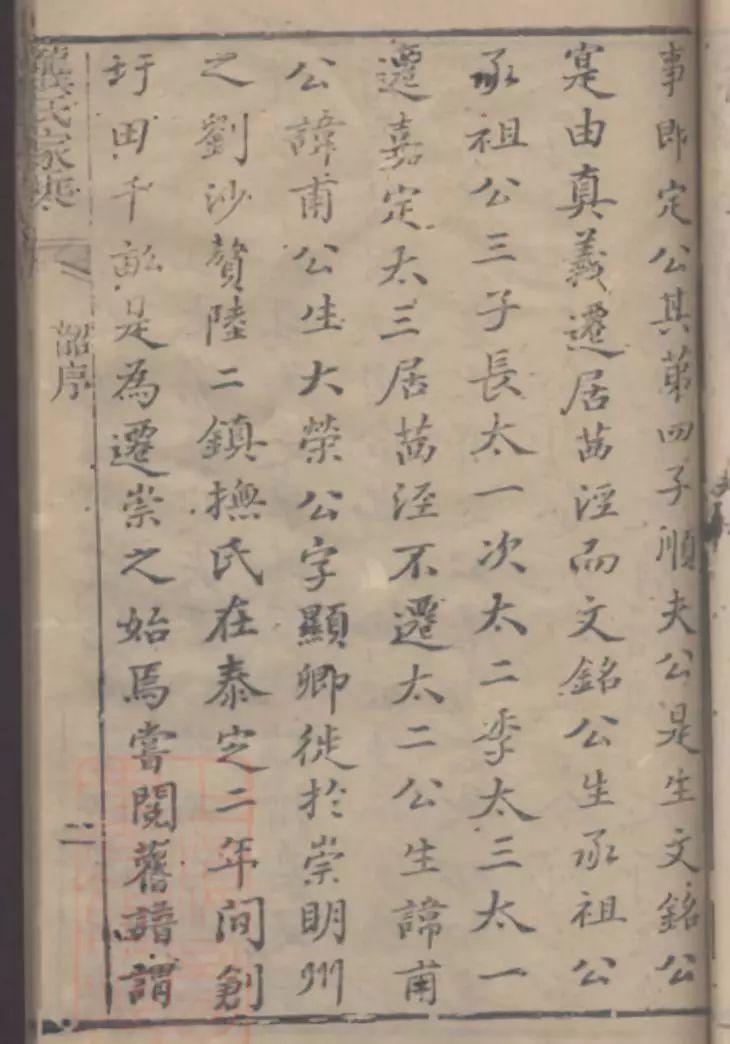 事即定公其苐四子順夫公是生文銘公
寔由真義遷居茜涇而文銘公生承祖公
承祖公三子長太一次太二季太三太一
遷嘉定太三居茜涇不遷太二公生諱甫
公諱甫公生大榮公字顯卿徙於崇明州
之劉沙贅陸二鎮撫氏在泰定二年間創
圩田千畝是為遷崇之始焉嘗閱舊譜謂
龔氏家乘
韶序
二